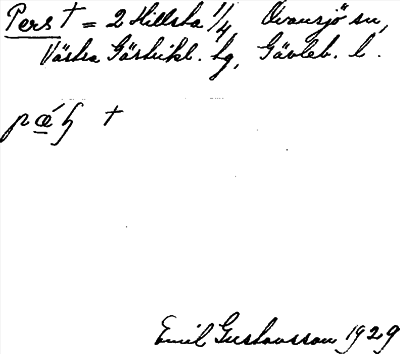 Pers † = 2 Hillsta 1/4, Ovansjö sn,
Västra Gästrikl. hg, Gävleb. l.
pǽʂ †
Emil Gustavsson 1929